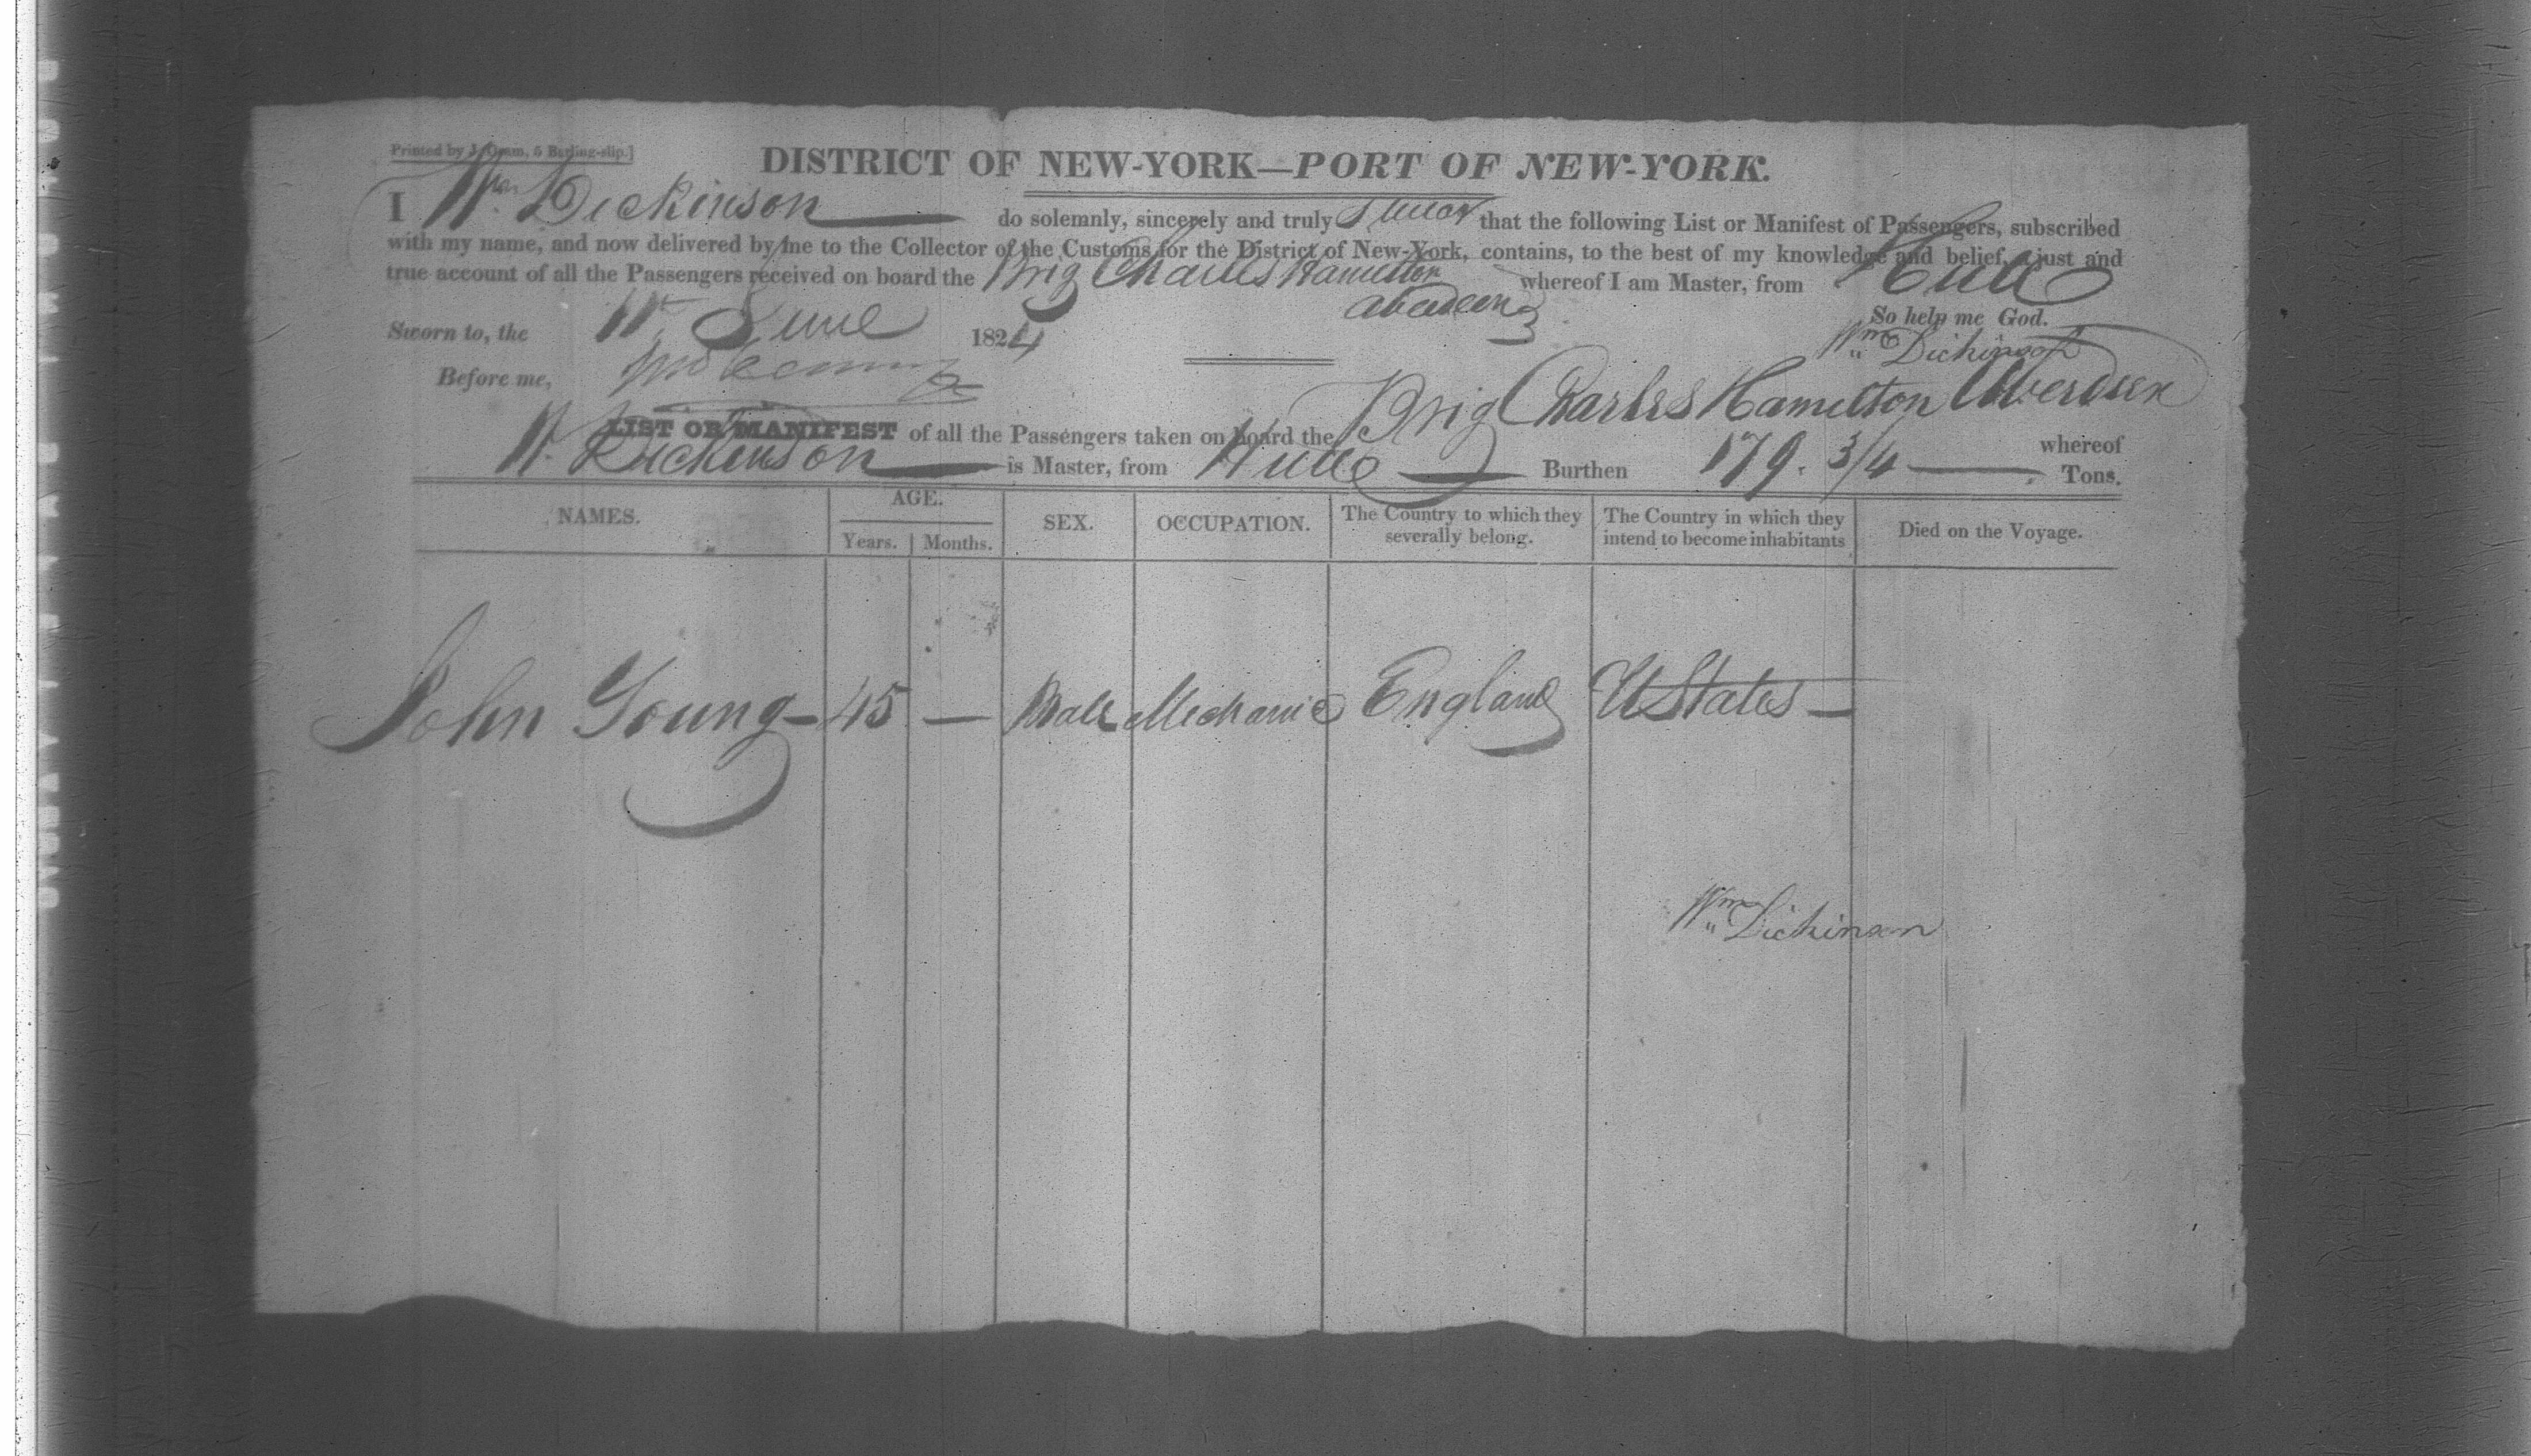 Printed by J. Oram, 5 Burling-slip.]
DISTRICT OF NEW-YORK—PORT OF NEW-YORK.
I Wm Dickinson do solemnly, sincerely and truly swear that the following List or Manifest of Passengers, subscribed
with my name, and now delivered by me to the Collector of the Customs for the District of New-York, contains, to the best of my knowledge and belief, a just and
true account of all the Passengers received on board the Brig Charles Hamilton whereof I am Master, from Hull
Aberdeen
So help me God.
Sworn to, the 11th June 1824
Wm Dickinson
Before me,
LIST OR MANIFEST of all the Passengers taken on board the Brig Charles Hamilton Aberdeen whereof
W. Dickenson is Master, from Hull Burthen 179. 3/4 Tons.
NAMES. AGE. SEX. OCCUPATION. The Country to which they severally belong. The Country in which they intend to become inhabitants Died on the Voyage.
Years. Months.
John Young — 45 — Male Mechanic England U States —
Wm Dickinson